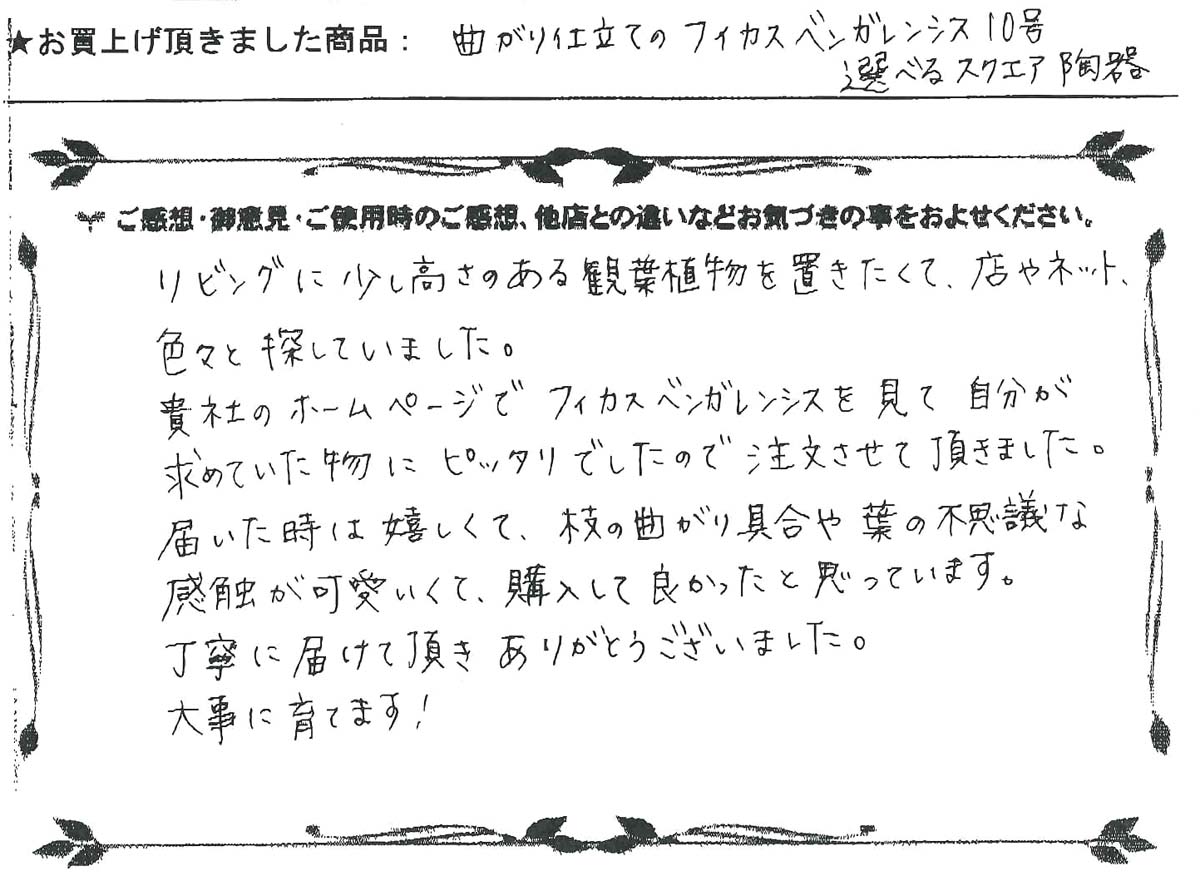 ★お買上げ頂きました商品： 曲がり仕立てのフィカスベンガレンシス10号
選べるスクエア陶器
ご感想・御意見・ご使用時のご感想、他店との違いなどお気づきの事をおよせください。
リビングに少し高さのある観葉植物を置きたくて、店やネット、
色々と探していました。
貴社のホームページでフィカスベンガレンシスを見て自分が
求めていた物にピッタリでしたので注文させて頂きました。
届いた時は嬉しくて、枝の曲がり具合や葉の不思議な
感触が可愛いくて、購入して良かったと思っています。
丁寧に届けて頂きありがとうございました。
大事に育てます！